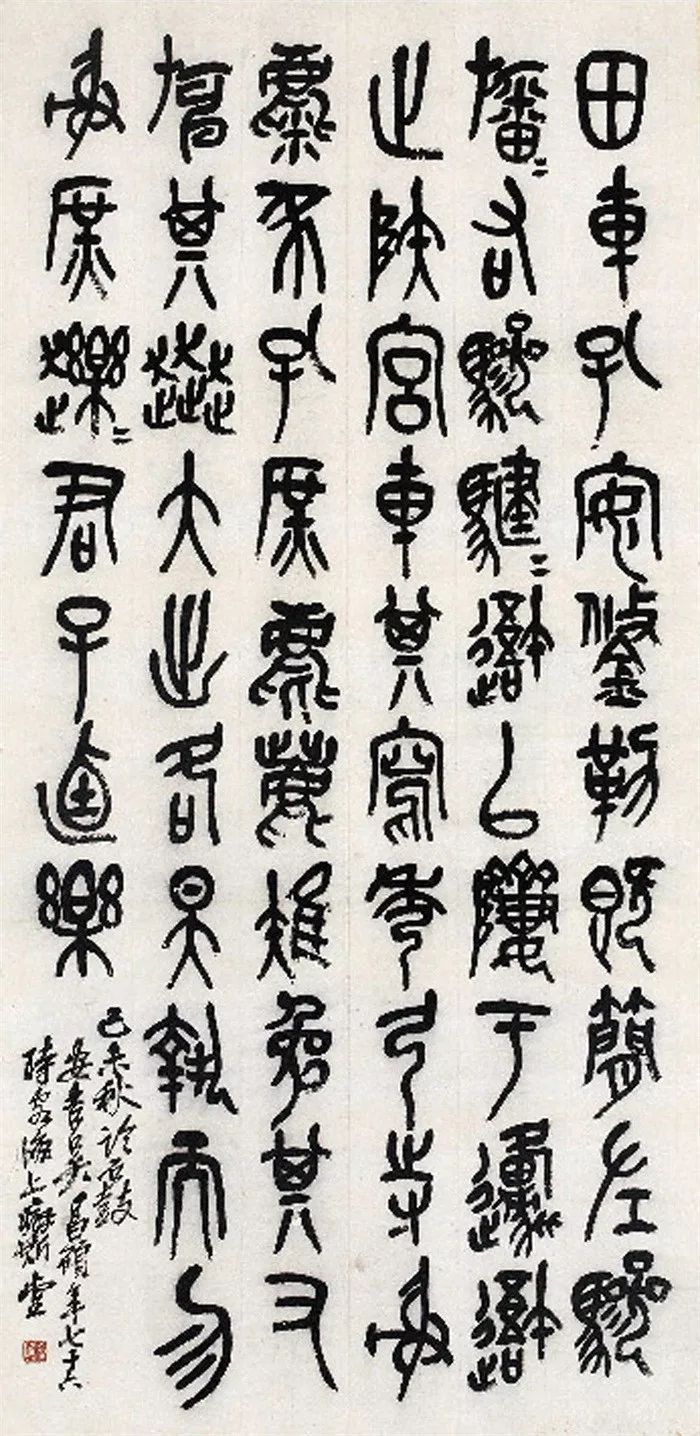 田車孔安鋚勒既簡左驂
旛＝右驂騝＝吾以隮于邍吾
止陝宮車其寫秀弓寺射
麋豕孔庶麀鹿雉兔其又
旃其奔大出各昊執而勿
射庶君子逌樂
己未秋石鼓
安吉吳昌碩年七十六
時客海上癖斯堂